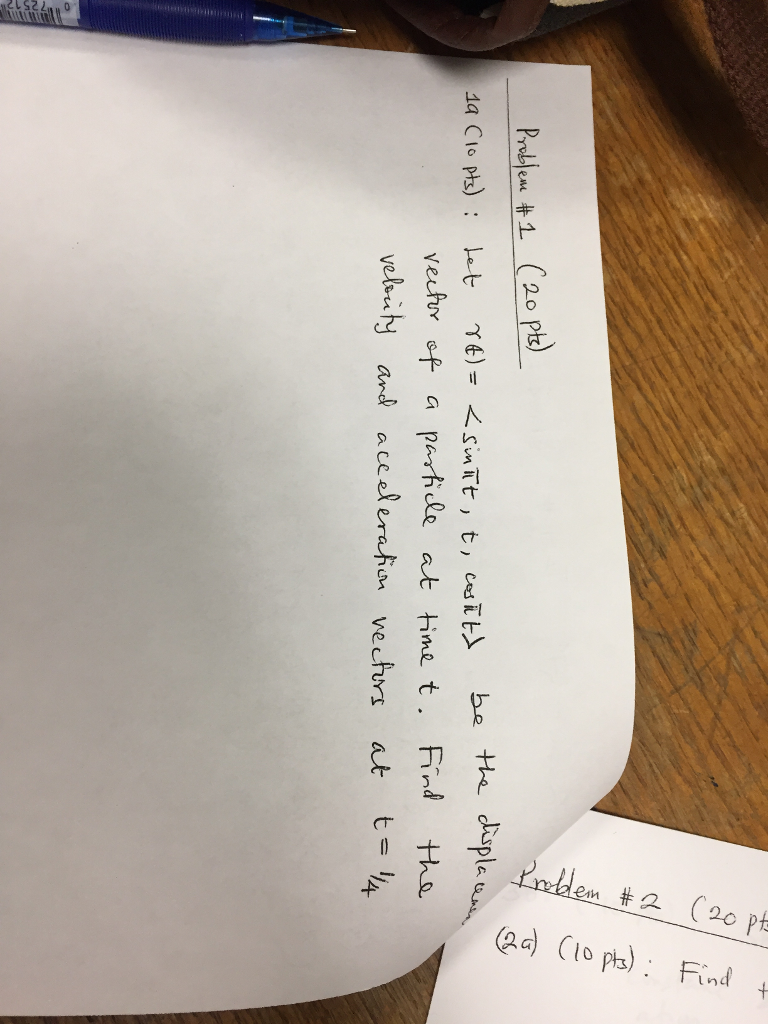 Problem #1 (20 pts)
1a (10 pts): Let r(t) = <sinπt, t, cosπt> be the displacemen
vector of a particle at time t. Find the
velocity and acceleration vectors at t = 1/4
Problem #2 (20 pts
(2a) (10 pts): Find t
0 72512